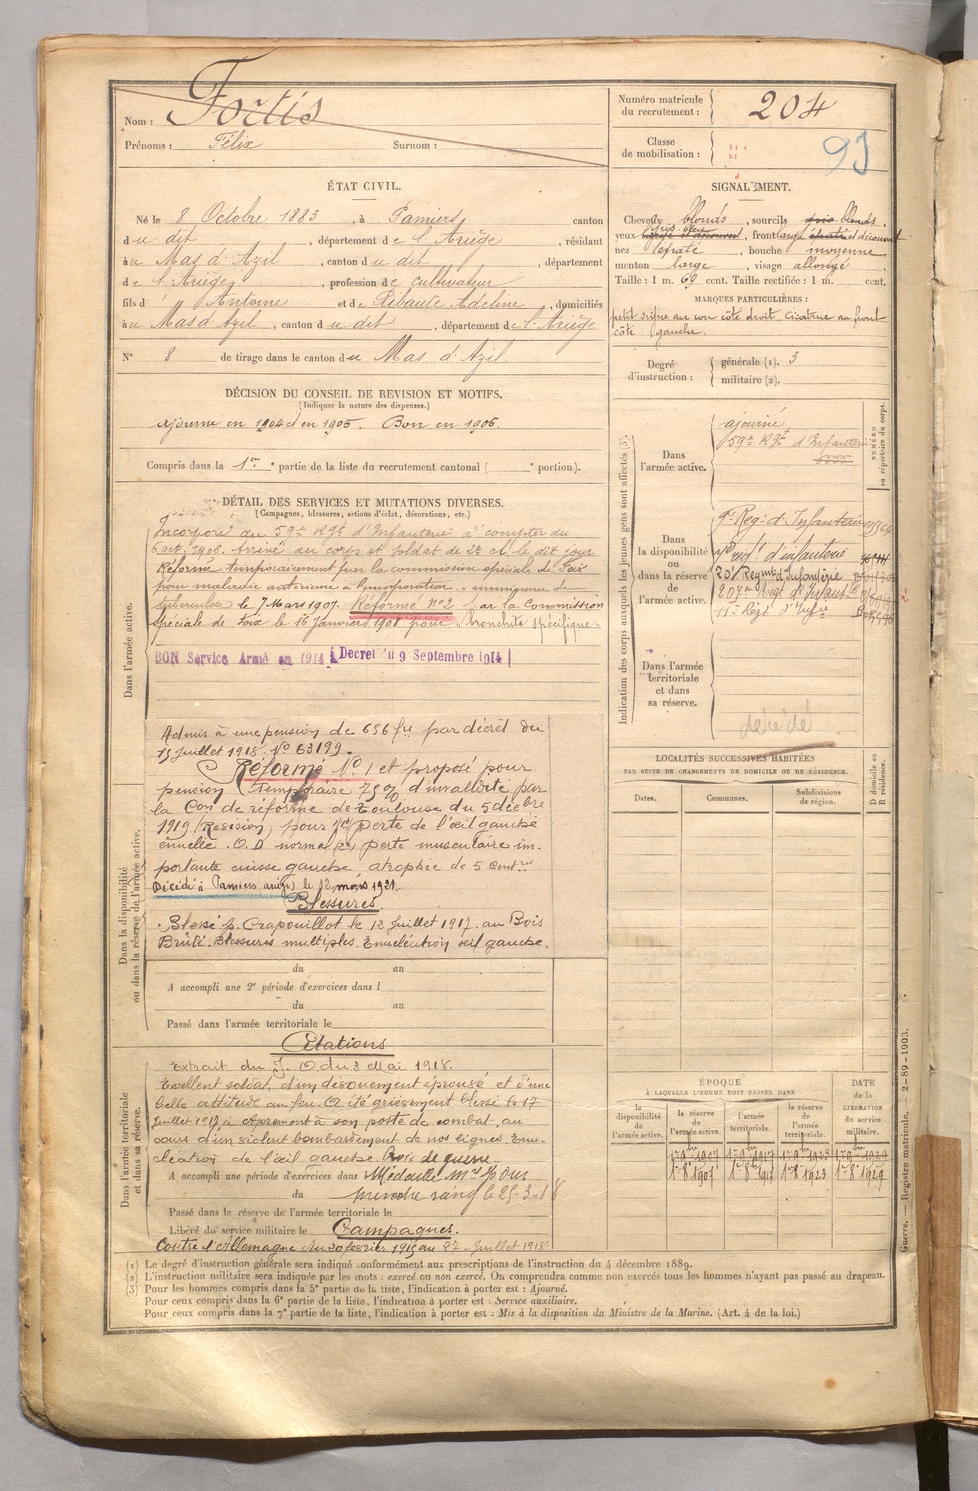 Nom : Fortis
Prénoms : Félix Surnom :
Numéro matricule du recrutement : 204
Classe de mobilisation : 93
ÉTAT CIVIL.
Né le 8 Octobre 1883, à Pamiers, canton
du dit, département de l'Ariège, résidant
à u Mas d'Azil, canton du dit, département
de l'Ariège, profession de cultivateur
fils d' Antoine et de Ribaute Adeline, domiciliés
à u Mas d'Azil, canton du dit, département de l'Ariège
N° 8 de tirage dans le canton du Mas d'Azil
SIGNALEMENT.
Cheveux blonds, sourcils blonds,
yeux gris bleu, front large et découvert
nez épaté, bouche moyenne
menton large, visage allongé
Taille : 1 m. 69 cent. Taille rectifiée : 1 m. cent.
MARQUES PARTICULIÈRES :
petit au cou côté droit. Cicatrice au front
côté gauche.
Degré d'instruction : générale (1). 3
militaire (2).
DÉCISION DU CONSEIL DE REVISION ET MOTIFS.
(Indiquer la nature des dispenses.)
ajourné en 1904 et en 1905. Bon en 1906.
Compris dans la 1ere partie de la liste du recrutement cantonal ( e portion).
DÉTAIL DES SERVICES ET MUTATIONS DIVERSES.
(Campagnes, blessures, actions d'éclat, décorations, etc.)
Dans l'armée active.
Incorporé au 59e Rgt d'Infanterie à compter du
6 oct. 1906. Arrivé au corps et soldat de 2e cl. le dit jour
Réformé temporairement par la commission spéciale de Foix
pour maladie antérieure à l'incorporation
tuberculose le 7 Mars 1907. Réformé n°2 par la Commission
spéciale de Foix le 16 Janvier 1908 pour bronchite spécifique.
BON Service Armé en 1914 (Decret du 9 Septembre 1914)
Admis à une pension de 696 frs par décret du
15 juillet 1918. N° 63199.
Réformé N° 1 et proposé pour
pension temporaire 75 % d'invalidité par
la Con de réforme de Toulouse du 5 décbre
1919 (Revision) pour 1° perte de l'œil gauche
énuclée. O.D normal 2° perte musculaire im-
portante cuisse gauche, atrophie de 5 centres
Décédé à Pamiers le 12 mars 1921.
Blessures.
Blessé p. Crapouillot le 12 Juillet 1917. au Bois
Brûlé. Blessures multiples. Enucléation œil gauche.
Dans la disponibilité ou dans la réserve de l'armée active.
du au
A accompli une 2e période d'exercices dans l
du au
Passé dans l'armée territoriale le
Citations
Dans l'armée territoriale et dans sa réserve.
Extrait du J. O. du 3 Mai 1918.
Excellent soldat, d'un dévouement éprouvé et d'une
belle attitude au feu. A été grièvement blessé le 17
Juillet 1917 à Apremont à son poste de combat, au
cours d'un violent bombardement de nos lignes. Enu-
cléation de l'œil gauche. Croix de guerre.
A accompli une période d'exercices dans Médaille Mre pour
du prendre rang le 25-3-18
Passé dans la réserve de l'armée territoriale le
Libéré du service militaire le
Campagnes.
Contre l'Allemagne du 20 février 1915 au 27 Juillet 1918.
Indication des corps auxquels les jeunes gens sont affectés (3).
NUMÉRO au répertoire du corps.
Dans l'armée active.
ajourné
59e Rgt d'Infanterie
Dans la disponibilité ou dans la réserve de l'armée active.
9e Regt d'Infanterie
d'infanterie
201 Regmt d'Infanterie
207e Regt d'Infant.
11e Regt d'Infie
Dans l'armée territoriale et dans sa réserve.
décédé
LOCALITÉS SUCCESSIVES HABITÉES
PAR SUITE DE CHANGEMENTS DE DOMICILE OU DE RÉSIDENCE.
D domicile ou R résidence.
Dates. Communes. Subdivisions de région.
ÉPOQUE
À LAQUELLE L'HOMME DOIT PASSER DANS
DATE de la LIBÉRATION du service militaire.
la disponibilité de l'armée active. la réserve de l'armée active. l'armée territoriale. la réserve de l'armée territoriale.
1er 9bre 1907 1er 9bre 1917 1er 9bre 1923 1er 9bre 1929
1er 8 1907 1er 8 1917 1er 8 1923 1er 8 1929
Guerre. — Registre matricule. — 3-89-1903.
(1) Le degré d'instruction générale sera indiqué conformément aux prescriptions de l'instruction du 4 décembre 1889.
(2) L'instruction militaire sera indiquée par les mots : exercé ou non exercé. On comprendra comme non exercés tous les hommes n'ayant pas passé au drapeau.
(3) Pour les hommes compris dans la 5e partie de la liste, l'indication à porter est : Ajourné.
Pour ceux compris dans la 6e partie de la liste, l'indication à porter est : Service auxiliaire.
Pour ceux compris dans la 7e partie de la liste, l'indication à porter est : Mis à la disposition du Ministre de la Marine. (Art. 4 de la loi.)